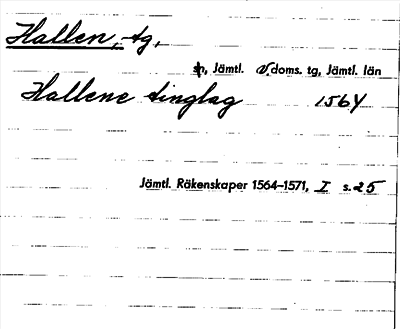 Hallen, tg,
sn, Jämtl. V.doms. tg, Jämtl. län
Hallene tinglag 1564
Jämtl. Räkenskaper 1564–1571, I s. 25